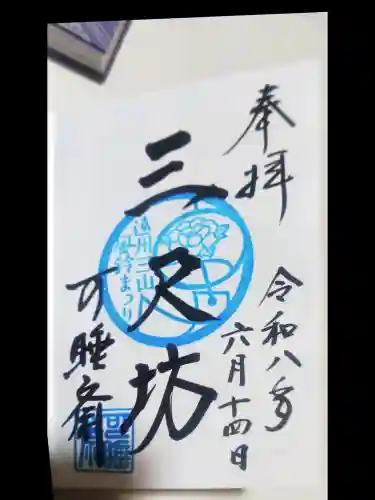 奉拝
令和八年
六月十四日
三尺坊
遠州三山
風鈴まつり
可睡斎